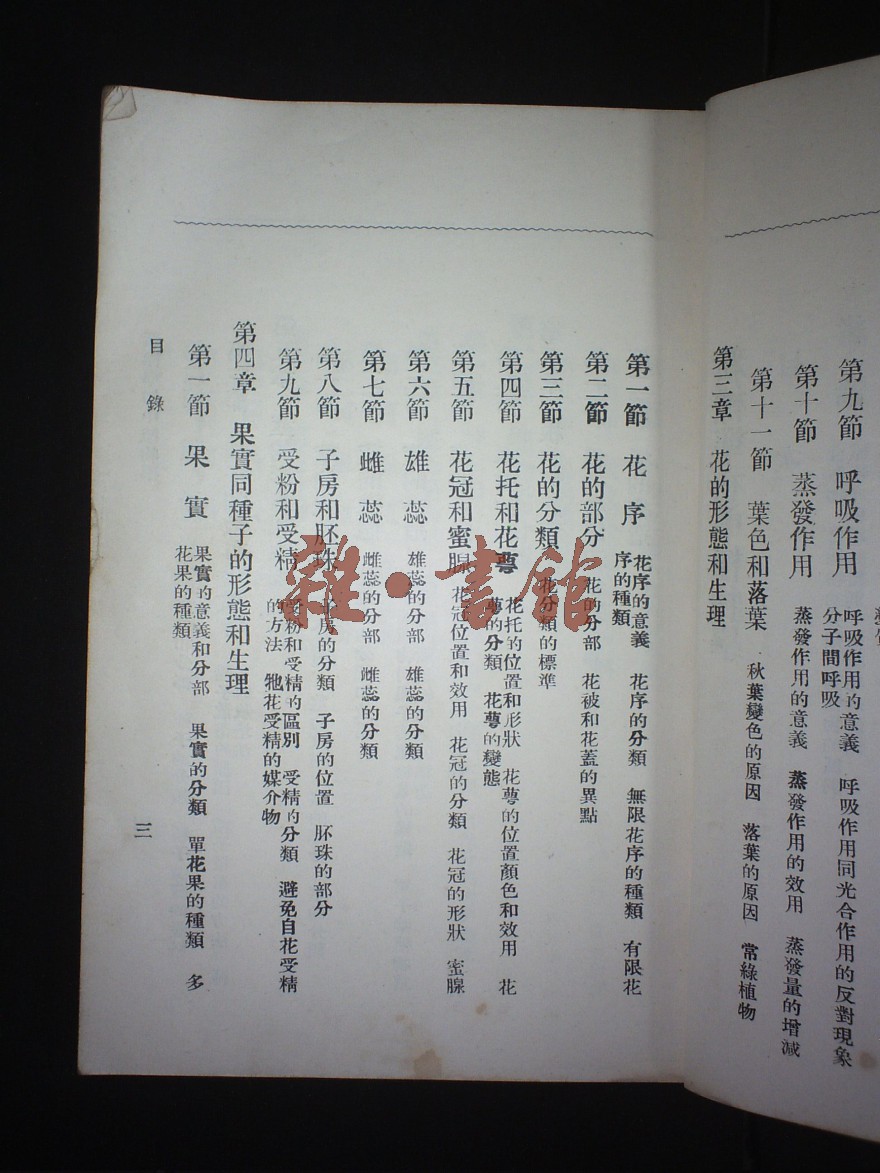 第九節 呼吸作用 呼吸作用的意義 呼吸作用同光合作用的反對現象
分子間呼吸
第十節 蒸發作用 蒸發作用的意義 蒸發作用的效用 蒸發量的增減
第十一節 葉色和落葉 秋葉變色的原因 落葉的原因 常綠植物
第三章 花的形態和生理
第一節 花序 花序的意義 花序的分類 無限花序的種類 有限花
序的種類
第二節 花的部分 花的分部 花被和花蓋的異點
第三節 花的分類 花分類的標準
第四節 花托和花萼 花托的位置和形狀 花萼的位置顏色和效用 花
萼的分類 花萼的變態
第五節 花冠和蜜腺 花冠位置和效用 花冠的分類 花冠的形狀 蜜腺
第六節 雄蕊 雄蕊的分部 雄蕊的分類
第七節 雌蕊 雌蕊的分部 雌蕊的分類
第八節 子房和胚珠 子房的分類 子房的位置 胚珠的部分
第九節 受粉和受精 受粉和受精的區別 受精的分類 避免自花受精
的方法 牠花受精的媒介物
第四章 果實同種子的形態和生理
第一節 果實 果實的意義和分部 果實的分類 單花果的種類 多
花果的種類
目錄
三
雜·書館